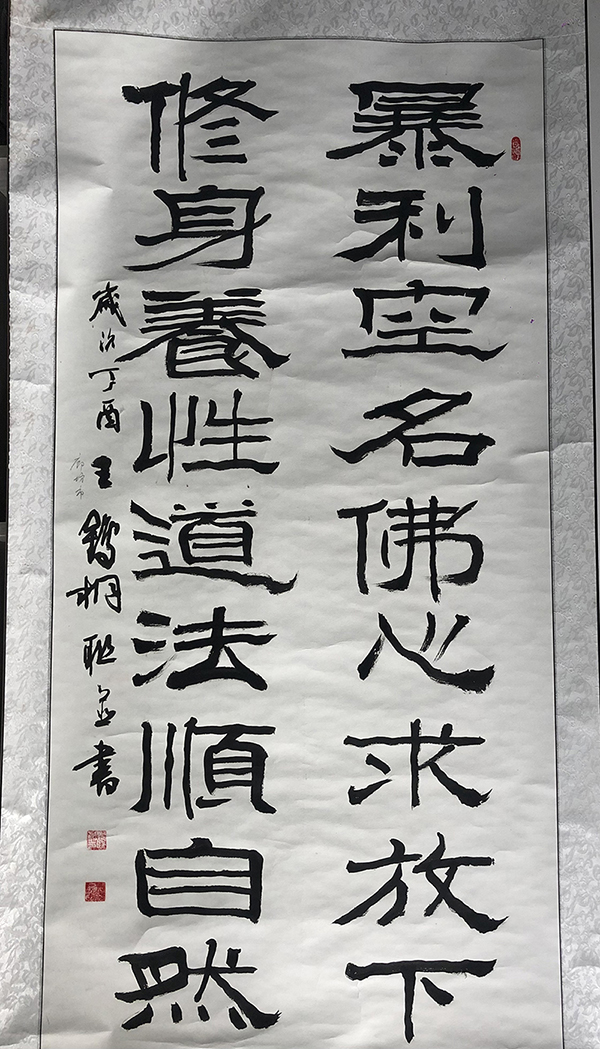 暴利空名佛心求放下
修身養性道法順自然
歲次丁酉王鶴桐联並書
廊坊市